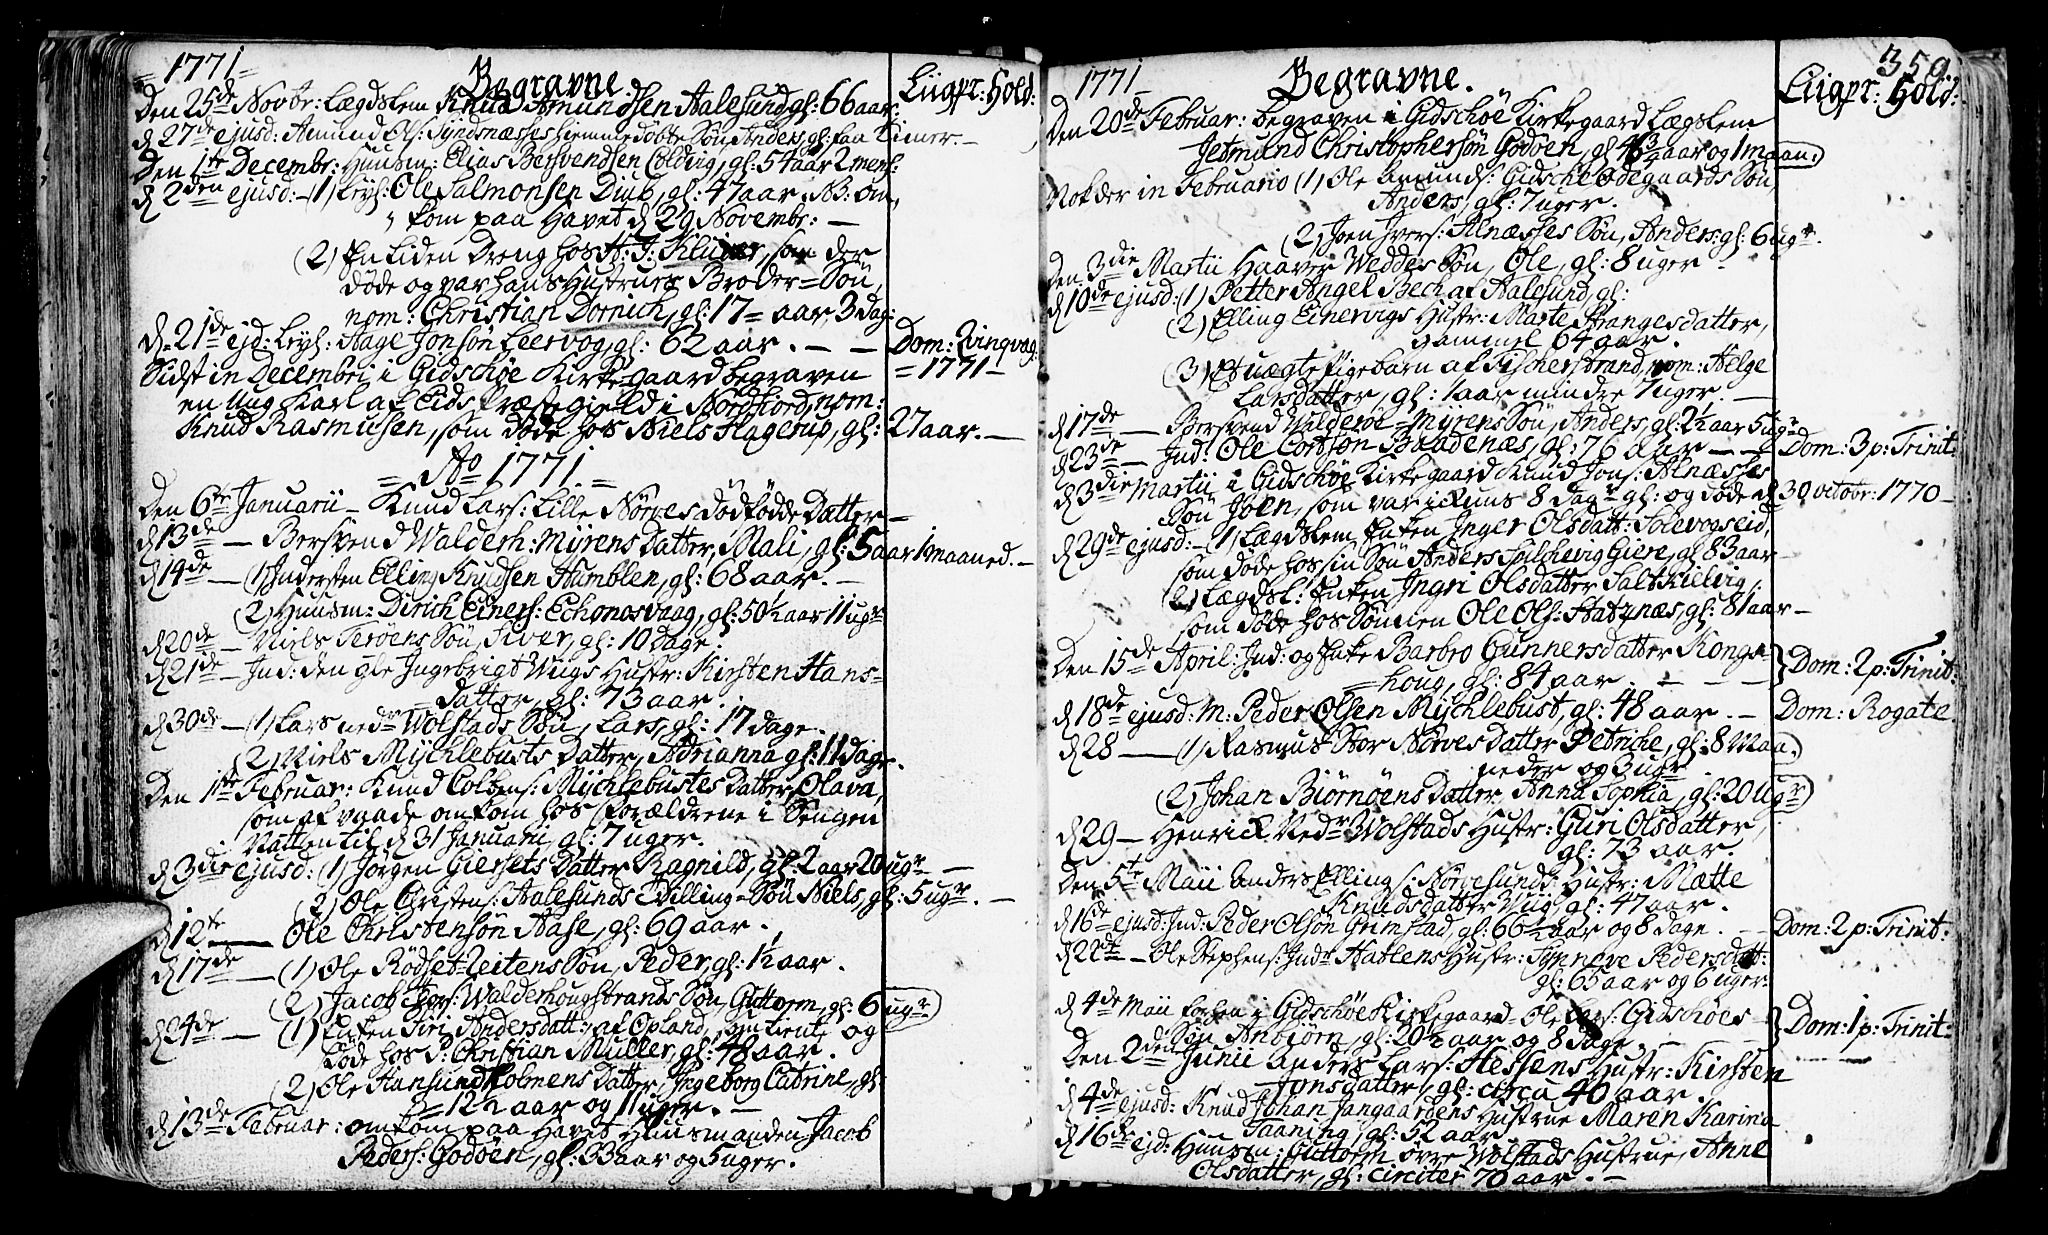 = 1771 =
Begravne.
Liigpr: Hold:
Den 25de Novbr: Lægdslem Knud Amundsen Aalesund gl: 66 aar.
d 27de ejusd: Amund Ols: Syndsnæsses hiemmedøbte Søn Anders, gl: faa timer. —
Den 1te Decembr: Huusm: Elias Bersvendsen Colding, gl: 54 aar 2 mens:
d 2den ejusd: — (1) Leyl: Ole Salmonsen Diub, gl: 47 aar. NB: om,
kom paa Havet d 29 Novembr: —
(2) En liden Dreng hos H: J: Klüwer, som der
døde og var hans Hustrues Broder=Søn,
nom: Christian Dornich, gl: 17 = aar, 3 Dag:
d. 21de ejd: Leyl: Aage Jonsøn Leervog, gl: 62 aar. — —
Dom: Qvinqvag:
= 1771 —
Sidst in Decembri i Gidschøe Kirke=gaard begraven
en ung Karl af Eids Præstegield i Nordfiord, nom:
Knud Rasmusen, som døde hos Niels Hagerup, gl: 27 aar. —
= Ao 1771. =
Den 6te Januarii — Knud Lars: Lille Nørves dødfødde Datter —
d 13de — Bersvend Walderh: Myrens Datter, Mali, gl: 5 aar 1 maaned. —
d 14de — (1) Indersten Elling Knudsen Humblen, gl: 68 aar. —
(2) Huusm: Dirich Einers: Echonasvaag, gl: 50½ aar 11 ugr
d 20de — Niels Terøens Søn, Siver, gl: 10 Dage.
d 21de — Ind: den gle Ingebrigt Wiigs Hustr: Kirsten Hans=
datter, gl: 73 aar.
d 30de — (1) Lars nedr Wolstads Søn, Lars, gl: 17 dage.
(2) Niels Mychlebusts Datter, Adrianna gl: 11 Dage.
Den 1te Februar: Knud Colbens: Mychlebustes Datter Olava,
som af vaade omkom hos Forældrene i Sengen
Natten til d 31 Januarii, gl: 7 uger.
d 3die ejusd: (1) Jørgen Giersets Datter Ragnild, gl: 2 aar 20 ugr —
(2) Ole Christens: Aalesunds Tvilling=Søn Niels, gl: 5 ugr. —
d 12te — Ole Christensøn Aase, gl: 69 aar.
d 17de — (1) Ole Rødset=Leitens Søn, Peder, gl: 1½ aar.
(2) Jacob Walderhougstrands Søn, Guttorm, gl: 6 ugr
d 24de — (1) Enken Siri Andersdatt: af Opland, som tiente og
døde hos S: Christian Muller, gl: 48 aar.
(2) Ole Hansundholmens Datter, Ingeborg Catrine, gl:
= 12½ aar og 11 uger. —
d 13de Februar: omkom paa Havet Huusmanden Jacob
Peders: Godøen, gl: 33 aar og 5 uger.
1771
Begravne.
359.
Liigpr: Hold:
Den 20de Februar: begraven i Gidschøe Kirkegaard Lægslem
Jetmund Christophersøn Godøen, gl: 43 aar og 1 maan:
Nok der in Februario (1) Ole Amunds: Gidsche Ødegaards Søn,
Anders, gl: 7 uger.
(2) Joen Ivers: Alnæsses Søn, Anders: gl: 6 ugr.
Den 3die Martii Haaver Weddes Søn, Ole, gl: 8 uger —
d 10de ejusd: (1) Petter Angel Bech af Aalesund, gl:
(2) Elling Einervigs Hustr: Marte Strangesdatter,
gammel 64 aar.
(3) Et uægte Pigebarn af Fischerstrand, nom: Helge
Larsdatter, gl: 1 aar mindre 7 uger. —
d 17de — Bersvend Walderøe=Myrens Søn, Anders, gl: 2½ aar 5 ugr
d 23de — Ind: Ole Cortsøn Baadenæs, gl: 76 aar — —
Dom: 3 p: Trinit:
d 3die Martii i Gidschøe Kirkegaard Knud Jons: Alnæsses
Søn Joen, som var ickuns 8 Dagr gl: og døde d 30 octobr: 1770 —
d 29de ejusd: — (1) Lægdslem Enken Inger Olsdatt: Solevogseid,
som døde hos sin Søn Anders Spilchevig Giere, gl 83 aar —
(2) Lægdsl: Enken Ingri Olsdatter Saltkielvig,
som døde hos Sønnen Ole Ols: Hatnæs, gl: 81 aar —
Den 15de April: Ind: og Enke Barbro Gunnersdatter Kongs=
houg, gl: 84 aar. — — —
Dom: 2 p: Trinit:
d 18de ejusd: M: Peder Olsen Mychlebust, gl: 48 aar. —
Dom: Rogate
d 28 — (1) Rasmus Stor Nørves Datter Petriche, gl: 8 Maa,
neder og 3 ugr
(2) Johan Biørnøens Datter, Anna Sophia, gl: 20 ugr
d 29 — Henrick Nedr Wolstads Hustr: Guri Olsdatter,
gl: 73 aar.
Den 5te Maii Anders Ellings: Nørvesunds Hustr: Mætte
Knudsdatter Wiig, gl: 47 aar.
d 16de ejusd: Ind: Peder Olsøn Grimstad, gl: 66½ aar og 8 dage. —
Dom: 2 p: Trinit:
d 22de — Ole Stephens: Indr Hatlens Hustr: Synnøve Pedersdatt:
gl: 65 aar og 6 uger.
d 4de Maii forhen i Gidschøe Kirkegaard Ole Lars: Gidschøes —
Søn Anbiørn, gl: 20½ aar og 8 dage. —
Dom: 1 p: Trinit:
Den 2den Junii Anders Lars: Hessens Hustr: Kirsten
Jonsdatter, gl: circa 40 aar.
d 4de ejusd: Knud Johan Jangaardens Hustrue Maren Karina
Saaning, gl: 52 aar
d 16de ejd: Huusm: Guttorm øvre Wolstads Hustrue, Anne
Olsdatter, gl: circiter 70 aar. —